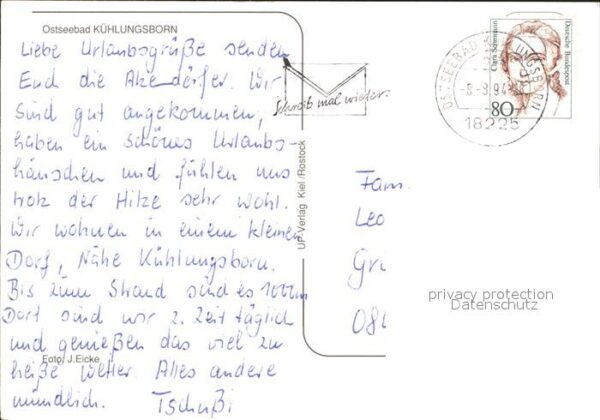 Ostseebad KÜHLUNGSBORN
Liebe Urlaubsgrüße senden
Euch die Alzedörfer. Wir
sind gut angekommen,
haben ein schönes Urlaubs-
häuschen und fühlen uns
trotz der Hitze sehr wohl.
Wir wohnen in einem kleinen
Dorf, Nähe Kühlungsborn.
Bis zum Strand sind es 1000m
Dort sind wir z. Zeit täglich
und genießen das viel zu
heiße Wetter. Alles andere
mündlich. Tschüßi
Foto: J.Eicke
UP-Verlag Kiel/Rostock
Schreib mal wieder.
OSTSEEBAD KÜHLUNGSBORN
-8-8.94
18225
Clara Schumann
Deutsche Bundespost
80
Fam.
Leo
Gri
084
privacy protection
Datenschutz